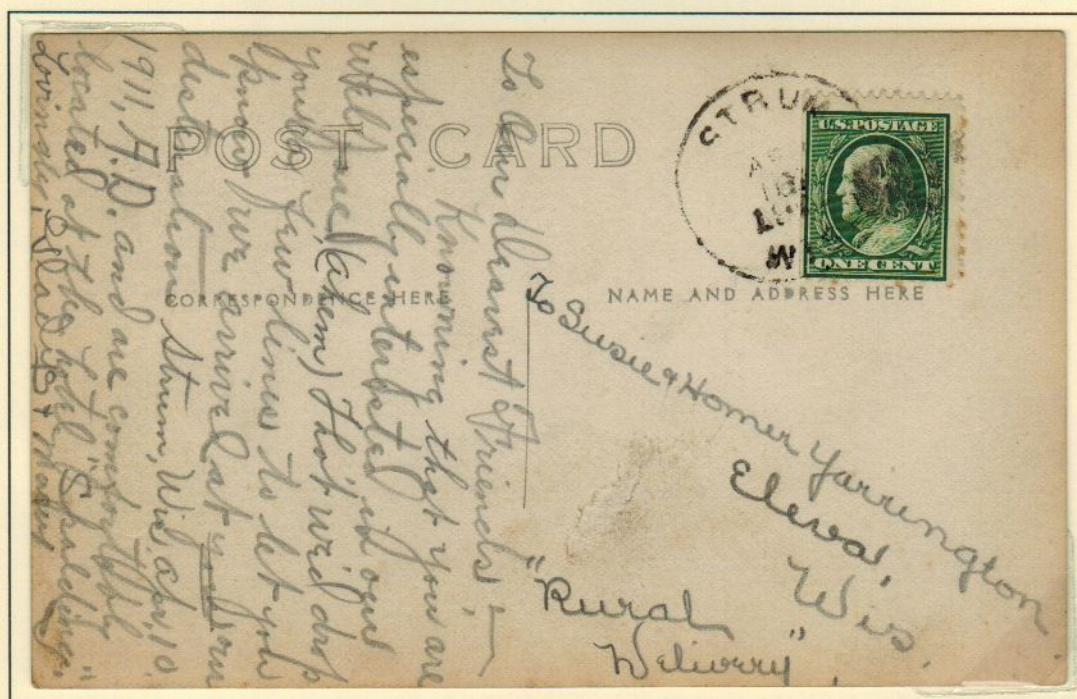 POST CARD
CORRESPONDENCE HERE
NAME AND ADDRESS HERE
STRUM
WIS
U.S. POSTAGE
ONE CENT
To Our Dearest Friends:—
Knowing that you are
especially interested in our
welfare, (ahem) Tho't we'd drop
you a few lines to let you
know we arrived at our
destination Strum, Wis. Apr, 10
1911, A.D. and are comfortably
located at the hotel "Spalding".
Lovingly, Sladie &
To Susie & Homer Yarrington
Eleva,
Wis.
"Rural
Delivery",